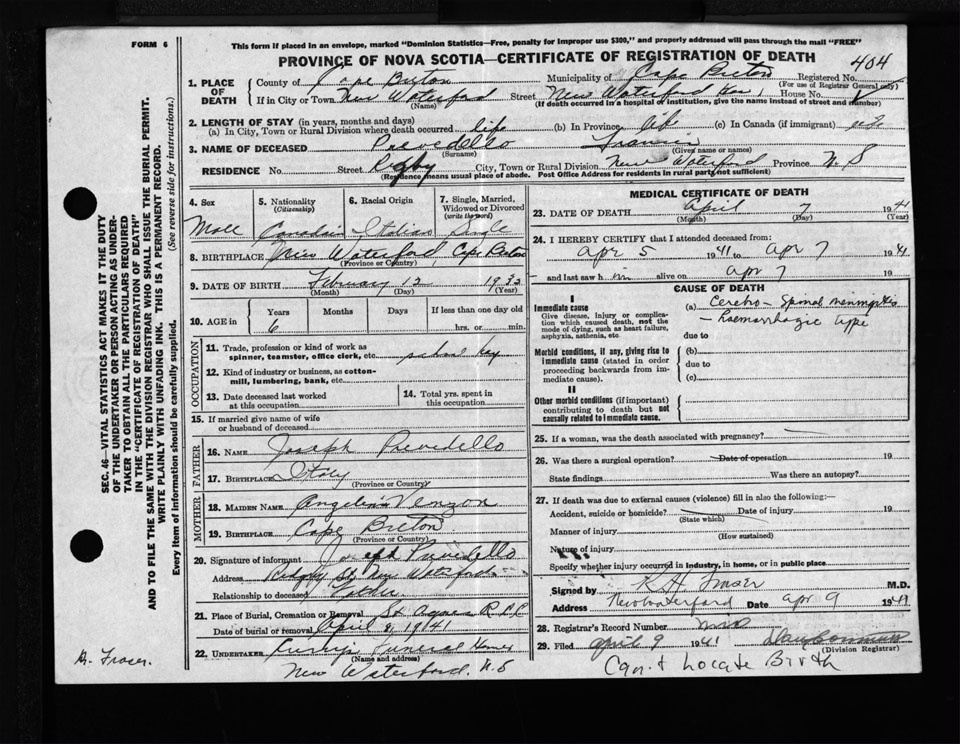 FORM 6
This form if placed in an envelope, marked "Dominion Statistics—Free, penalty for improper use $300," and properly addressed will pass through the mail "FREE"
PROVINCE OF NOVA SCOTIA—CERTIFICATE OF REGISTRATION OF DEATH
404
1. PLACE OF DEATH
County of Cape Breton Municipality of Cape Breton Registered No.
(For use of Registrar General only)
If in City or Town New Waterford Street New Waterford House No.
(Name) (If death occurred in a hospital or institution, give the name instead of street and number)
2. LENGTH OF STAY (in years, months and days)
(a) In City, Town or Rural Division where death occurred life (b) In Province life (c) In Canada (if immigrant)
3. NAME OF DECEASED Prevedello Francis
(Surname) (Given name or names)
RESIDENCE No. Street City, Town or Rural Division New Waterford Province N. S
(Residence means usual place of abode. Post Office Address for residents in rural parts not sufficient)
4. Sex
Male
5. Nationality
(Citizenship)
Canadian
6. Racial Origin
Italian
7. Single, Married, Widowed or Divorced
(write the word)
Single
8. BIRTHPLACE New Waterford, Cape Breton
(Province or Country)
9. DATE OF BIRTH February 12
(Month) (Day) (Year)
10. AGE in Years Months Days If less than one day old
6 hrs. or min.
OCCUPATION
11. Trade, profession or kind of work as spinner, teamster, office clerk, etc. school boy
12. Kind of industry or business, as cotton-mill, lumbering, bank, etc.
13. Date deceased last worked at this occupation
14. Total yrs. spent in this occupation
15. If married give name of wife or husband of deceased
FATHER
16. NAME Joseph Prevedello
17. BIRTHPLACE Italy
(Province or Country)
MOTHER
18. MAIDEN NAME Venzon
19. BIRTHPLACE Cape Breton
(Province or Country)
20. Signature of informant Joseph Prevedello
Address St New Waterford
Relationship to deceased Father
21. Place of Burial, Cremation or Removal St Agnes
Date of burial or removal April 8, 1941
22. UNDERTAKER Funeral Home
(Name and address)
New Waterford, N. S
MEDICAL CERTIFICATE OF DEATH
23. DATE OF DEATH April 7 1941
(Month) (Day) (Year)
24. I HEREBY CERTIFY that I attended deceased from:
Apr 5 1941 to Apr 7 1941
and last saw him alive on Apr 7 19
CAUSE OF DEATH
I
Immediate cause
Give disease, injury or complication which caused death, not the mode of dying, such as heart failure, asphyxia, asthenia, etc
(a) Cerebro-Spinal meningitis
- haemorrhagic type
due to
Morbid conditions, if any, giving rise to immediate cause (stated in order proceeding backwards from immediate cause).
(b)
due to
(c)
II
Other morbid conditions (if important) contributing to death but not causally related to immediate cause.
25. If a woman, was the death associated with pregnancy?
26. Was there a surgical operation? Date of operation 19
State findings Was there an autopsy?
27. If death was due to external causes (violence) fill in also the following:—
Accident, suicide or homicide? Date of injury 19
(State which)
Manner of injury
(How sustained)
Nature of injury
Specify whether injury occurred in industry, in home, or in public place
Signed by K H Fraser M.D.
Address New Waterford Date Apr 9 1941
28. Registrar's Record Number
29. Filed April 9 1941
(Division Registrar)
Can't Locate Birth
SEC. 46—VITAL STATISTICS ACT MAKES IT THE DUTY
OF THE UNDERTAKER OR PERSON ACTING AS UNDERTAKER TO OBTAIN ALL THE PARTICULARS REQUIRED
IN THE "CERTIFICATE OF REGISTRATION OF DEATH"
AND TO FILE THE SAME WITH THE DIVISION REGISTRAR WHO SHALL ISSUE THE BURIAL PERMIT.
WRITE PLAINLY WITH UNFADING INK. THIS IS A PERMANENT RECORD.
Every item of information should be carefully supplied. (See reverse side for instructions.)
Fraser.